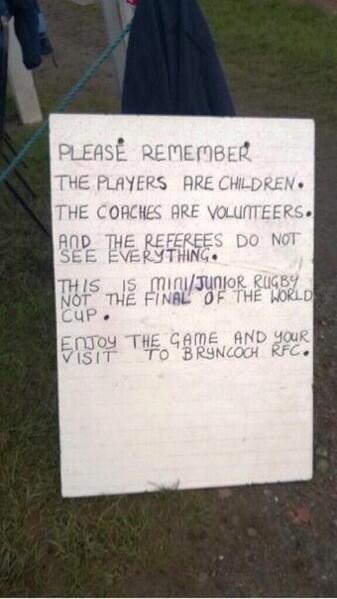 PLEASE REMEMBER
THE PLAYERS ARE CHILDREN.
THE COACHES ARE VOLUNTEERS.
AND THE REFEREES DO NOT
SEE EVERYTHING.
THIS IS MINI/JUNIOR RUGBY
NOT THE FINAL OF THE WORLD
CUP.
ENJOY THE GAME AND YOUR
VISIT TO BRYNCOCH RFC.